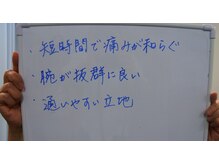 ・短時間で痛みが和らぐ
・腕が抜群に良い
・通いやすい立地